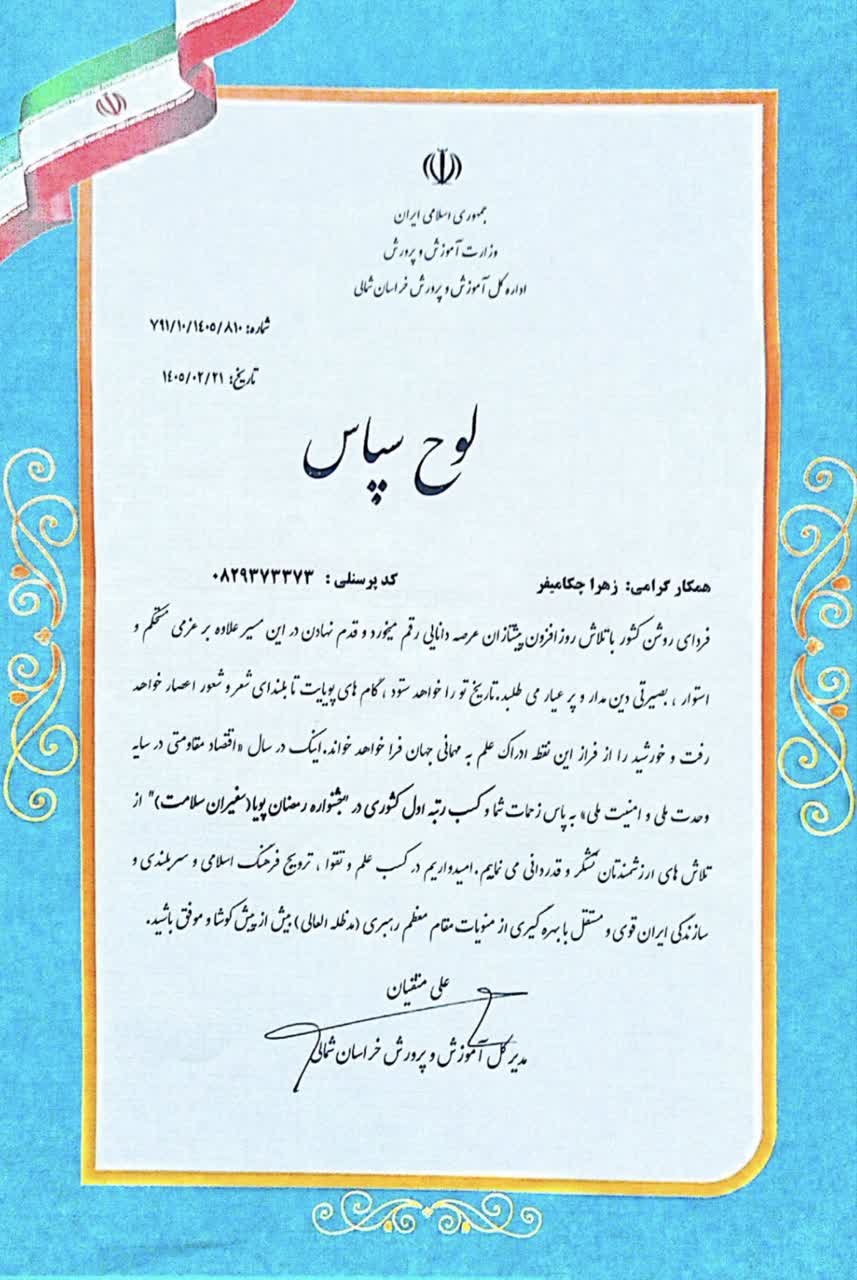 جمهوری اسلامی ایران
وزارت آموزش و پرورش
اداره کل آموزش و پرورش خراسان شمالی
شماره: ۷۹۱/۱۰/۱۴۰۵/۸۱۰
تاریخ: ۱۴۰۵/۰۲/۲۱
لوح سپاس
همکار گرامی: زهرا چکامیفر کد پرسنلی: ۰۸۲۹۳۷۳۳۷۳
فردای روشن کشور با تلاش روزافزون پیشتازان عرصه دانایی رقم میخورد و قدم نهادن در این مسیر علاوه بر عزمی مستحکم و
استوار ، بصیرتی دین مدار و پر عیار می طلبد.تاریخ تو را خواهد ستود ، گام های پویایت تا بلندای شعر و شعور اعصار خواهد
رفت و خورشید را از فراز این نقطه ادراک علم به مهمانی جهان فرا خواهد خواند.اینک در سال «اقتصاد مقاومتی در سایه
وحدت ملی و امنیت ملی» به پاس زحمات شما و کسب رتبه اول کشوری در "جشنواره رمضان پویا(سفیران سلامت)" از
تلاش های ارزشمندتان تشکر و قدردانی می نماییم.امیدواریم در کسب علم و تقوا ، ترویج فرهنگ اسلامی و سربلندی و
سازندگی ایران قوی و مستقل با بهره گیری از منویات مقام معظم رهبری (مدظله العالی) بیش از پیش کوشا و موفق باشید.
علی متقیان
مدیر کل آموزش و پرورش خراسان شمالی